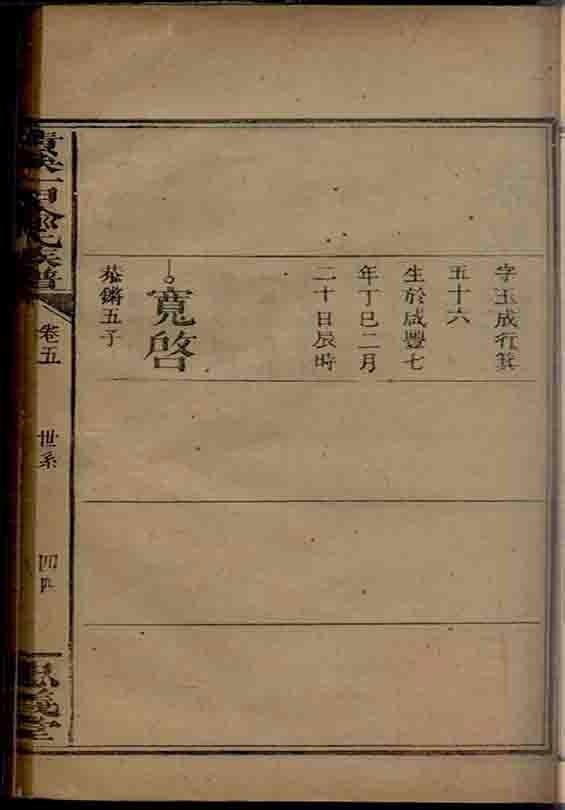 字玉成行箕
五十六
生於咸豐七
年丁巳二月
二十日辰時
寬啓
恭鏘五子
族譜
卷五
世系
四